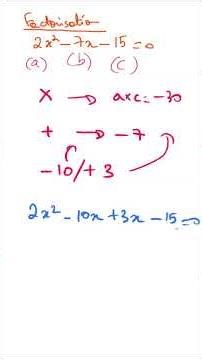 Factorisation
2x² - 7x - 15 = 0
(a) (b) (c)
× → a×c = -30
+ → -7
-10/+3
2x² - 10x + 3x - 15 = 0